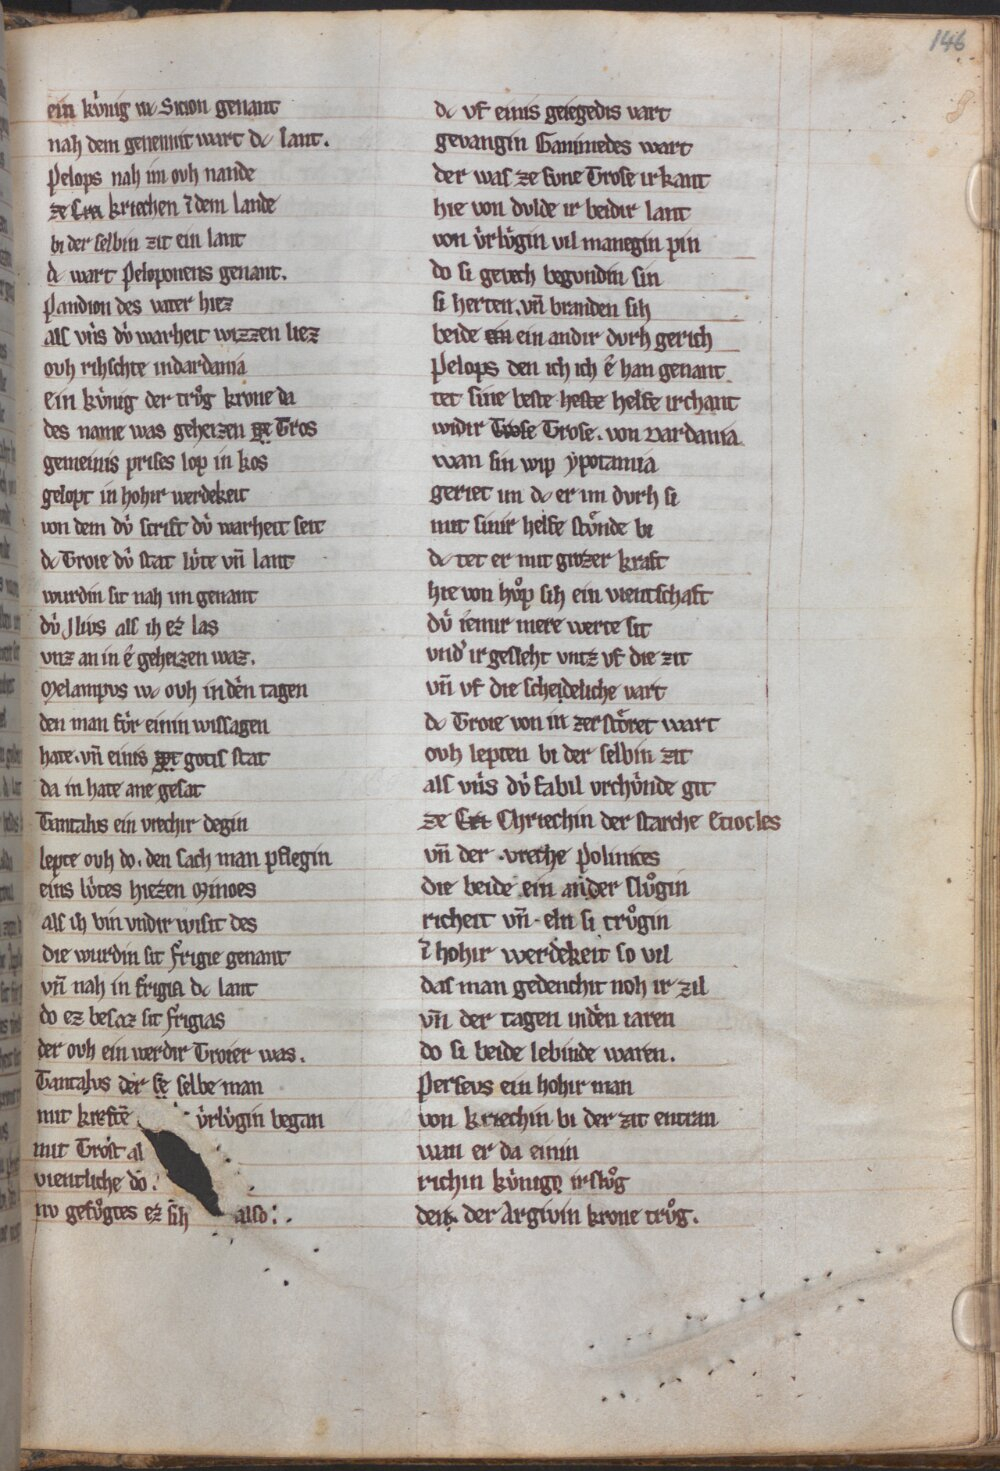 146
ein kv́nig wc Sicion genant
nah dem genemit wart dc lant.
Pelops nah im ovh nande
ze Cra kriechen ī dem lande
bi der selbin zit ein lant
dc wart Peloponens genant.
Pandion des vater hiez
als vn̄s dv́ warheit wizzen liez
ovh rihschte in dardania
ein kv́nig der trv̊g krone da
des name was geheizen ge Tros
gemeinis prises lop in kos
gelopt in hohir werdekeit
von dem dv́ scrift dv́ warheit seit
dc Troie dv́ stat lv́te vn̄ lant
wurdin sit nah im genant
dv́ Jlivs als ih ez las
vnz an in é geheizen waz.
Melampvs wc ovh in dên tagen
den man fv́r einin wissagen
hate. vn̄ einis got gotis stat
da in hate ane gesat
Tantalvs ein vrechir degin
lepte ovh do. den sach man pflegin
eins lv́tes hiezen Minoes
als ih bin vndir wisit des
die wurdin sit frigie genant
vn̄ nah in frigia dc lant
do ez besaz sit frigias
der ovh ein werdir Troier was.
Tantalvs der se selbe man
mit kreftē v́rlv́gin began
mit Trost al
vientliche do.
nv gefv̊gtes ez sih also.
dc vf einis geiegedis vart
gevangin Ganimedes wart
der was ze svne Trose irkant
hie von dvlde ir beidir lant
von v́rlv́gin vil manegin pin
do si gevech begvndin sin
si herten. vn̄ branden sih
beide ein ein andir dvrh gerich
Pelops den ich ich é han genant
tet sine beste heste helfe irchant
widir Trose Trose. von Dardania
wan sin wip ypotamia
geriet im dc er im dvrh si
mit sinir helfe stv̊nde bi
dc tet er mit grozer kraft
hie von hv̊p sih ein vientschaft
dv́ iemir mere werte sit
vnd' ir gesleht vntz vf die zit
vn̄ vf die scheideliche vart
dc Troie von in zerstôret wart
ovh lepten bi der selbin zit
als vn̄s dv́ fabil vrchv́nde git
ze Cri Chriechin der starche Etiocles
vn̄ der vreche Polinices
die beide ein ander slv̊gin
richeit vn̄ eln si trv̊gin
ī hohir werdekeit so vil
das man gedenchit noh ir zil
vn̄ der tagen in dên iaren
do si beide lebinde waren.
Perseus ein hohir man
von kriechin bi der zit entran
wan er da einin
richin kv́nige irslv̊g
den. der Argivin krone trv̊g.